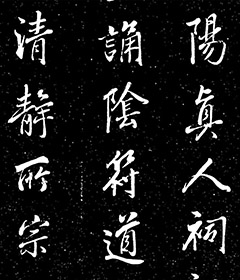 陽真人祠
誦陰符道
清靜所宗